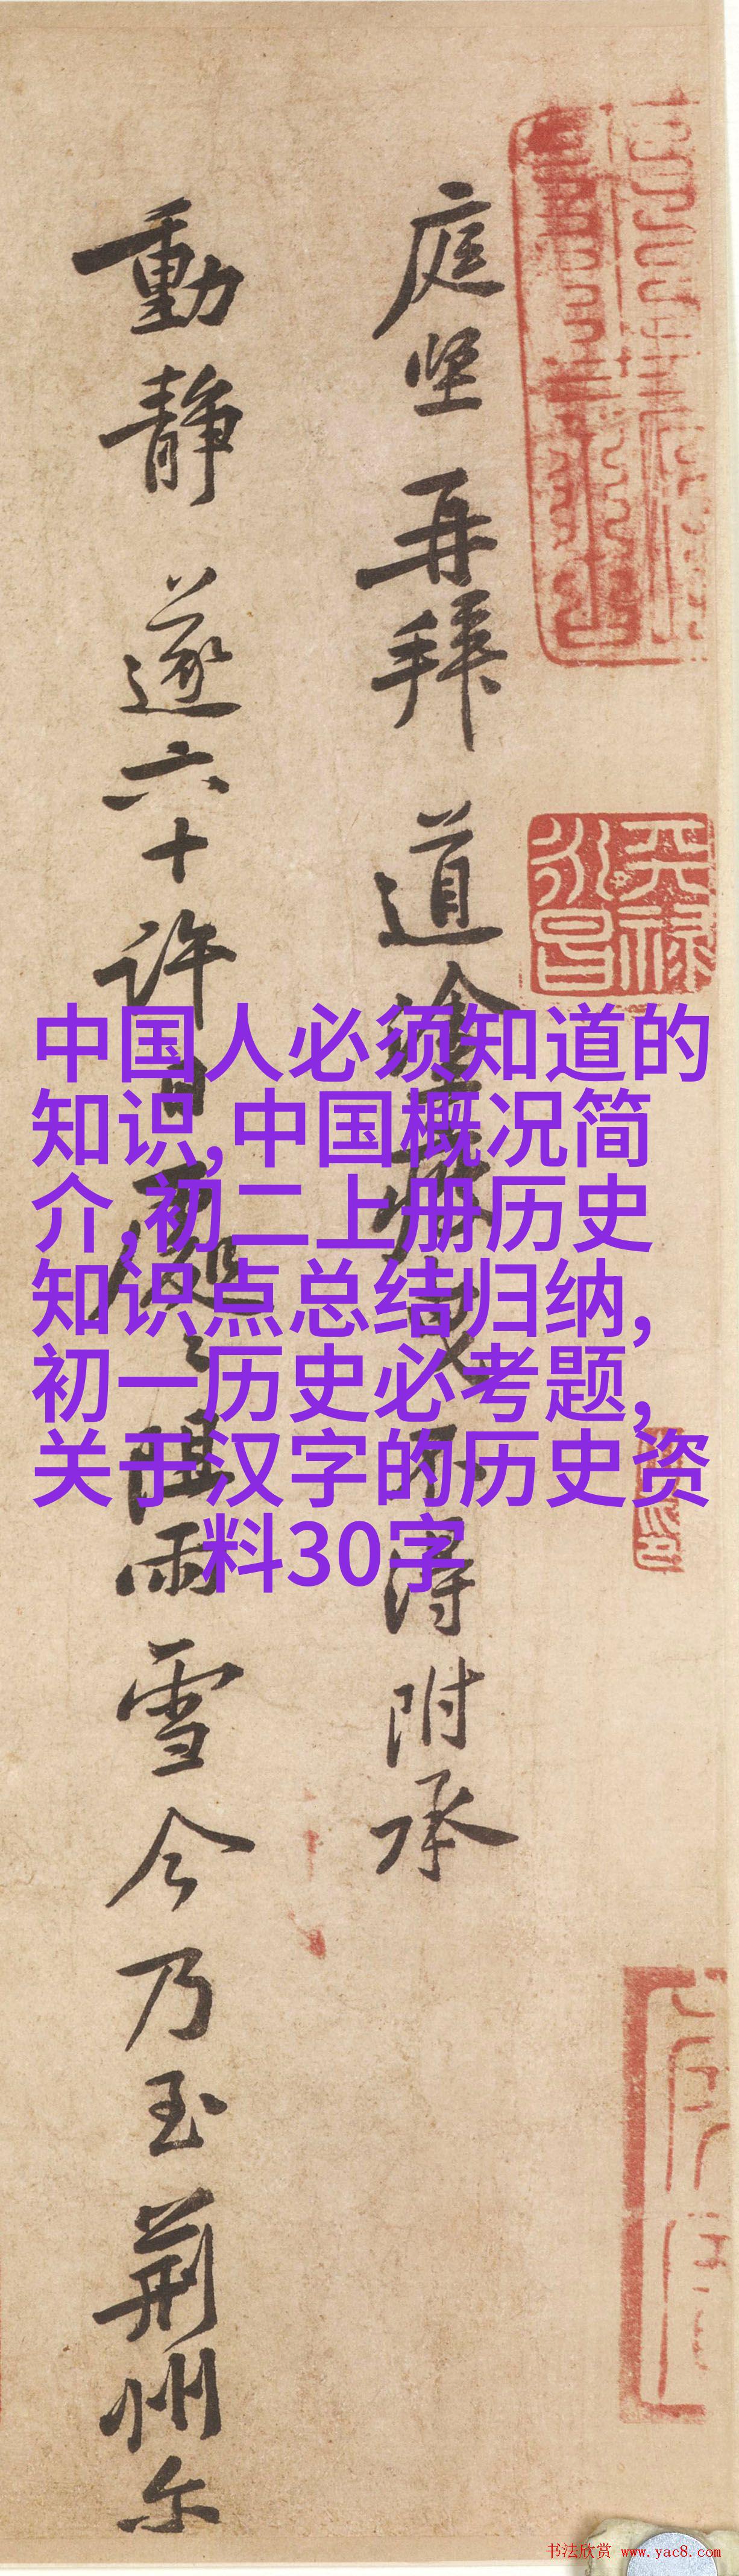 庭坚再拜道塗疲曳不得附承
動静遂六十许日處處阻雨雪今乃至荆州尔
天禄
永昌
中国人必须知道的
知识,中国概况简
介,初二上册历史
知识点总结归纳,
初一历史必考题,
关于汉字的历史资
料30字
书法欣赏 www.yac8.com